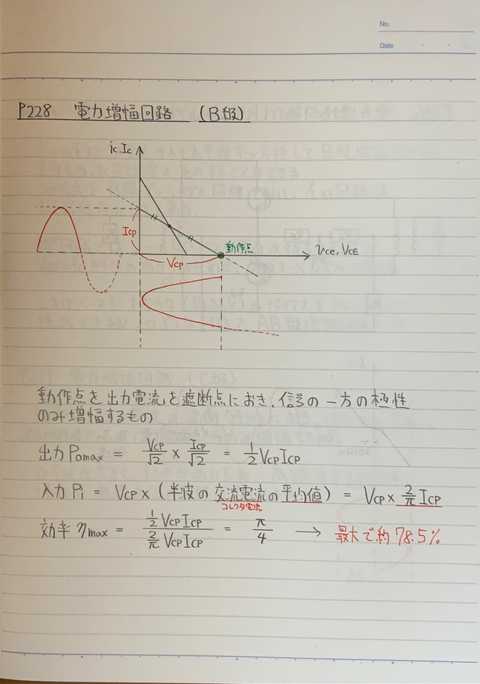 No.
Date
P228 電力増幅回路 (B級)
ic Ic
Icp
動作点
Vcp
vce, VCE
動作点を出力電流を遮断点におき、信号の一方の極性
のみ増幅するもの
出力 Pomax = Vcp/√2 × Icp/√2 = 1/2 Vcp Icp
入力 Pi = Vcp × (半波の交流電流の平均値) = Vcp × 2/π Icp
コレクタ電流
効率 ηmax = 1/2 Vcp Icp / 2/π Vcp Icp = π/4 → 最大で約78.5%